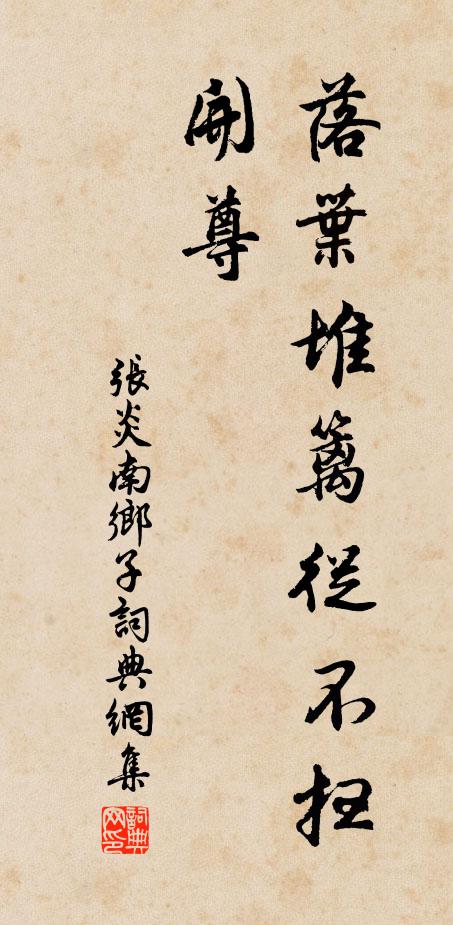 落葉堆篱從不扫
開尊
張炎南鄉子詞典網集
詞典
网印